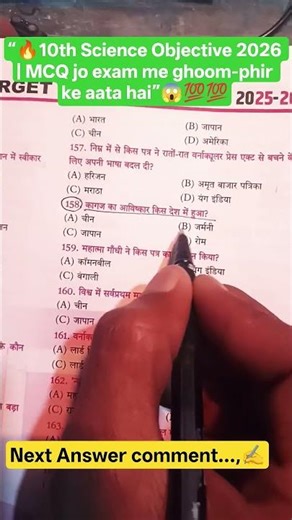 “🔥10th Science Objective 2026
| MCQ jo exam me ghoom-phir
ke aata hai”😱💯💯
RGET
2025-20
(A) भारत
(B) जापान
(C) चीन
(D) अमेरिका
157. निम्न में से किस पत्र ने रातों-रात वर्नाक्यूलर प्रेस एक्ट से बचने के
लिए अपनी भाषा बदल दी?
न में स्वीकार
(A) हरिजन
(B) अमृत बाजार पत्रिका
(C) मराठा
(D) यंग इंडिया
158. कागज का आविष्कार किस देश में हुआ?
(A) चीन
(B) जर्मनी
(C) जापान
रोम
159. महात्मा गाँधी ने किस पत्र का किया?
(A) कॉमनवील
(C) बंगाली
यंग इंडिया
160. विश्व में सर्वप्रथम
(A) चीन
(C) जापान
के कौन
161.
(A) लार्ड
(C) लार्ड
162.
(A)
बड़ा
(C)
163.
Next Answer comment...,✍️